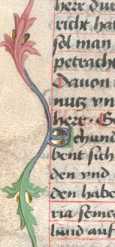 herr dur
richt hat
sol man
petracht
Dauon
nutz vn
herr · G
ehund
bent sich
den vnd
den habe
ria seine
lund auf